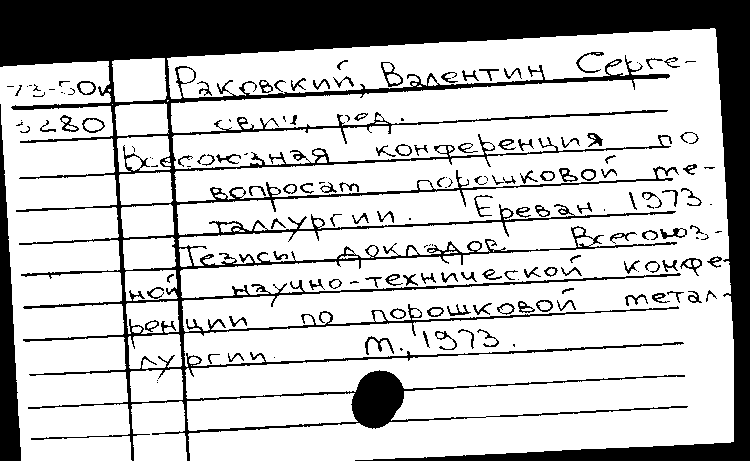 73-50к Раковский, Валентин Серге-
3280 евич, ред.
Всесоюзная конференция по
вопросам порошковой ме-
таллургии. Ереван. 1973.
Тезисы докладов Всесоюз-
ной научно-технической конфе-
ренции по порошковой метал-
лургии. М., 1973.